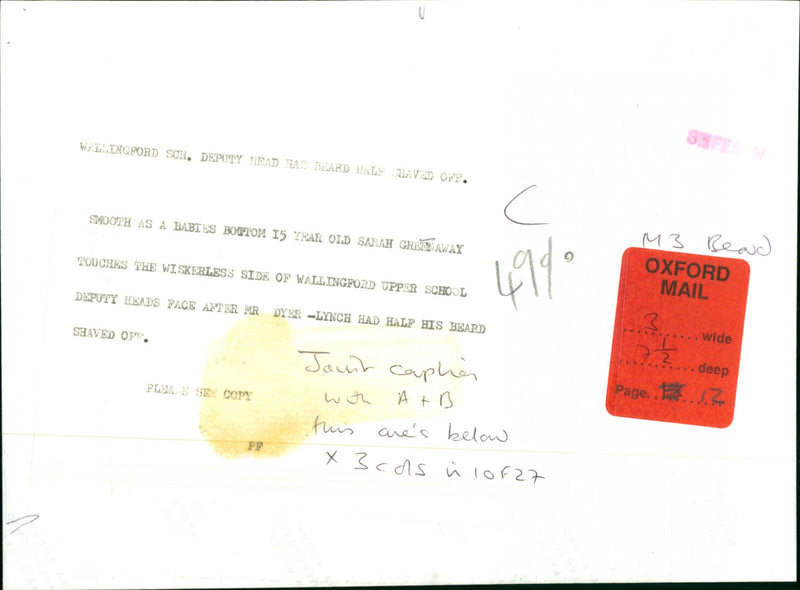 WALLINGFORD SCH. DEPUTY HEAD HAS BEARD HALF SHAVED OFF.
SMOOTH AS A BABIES BOTTOM 15 YEAR OLD SARAH GREENAWAY
TOUCHES THE WISKERLESS SIDE OF WALLINGFORD UPPER SCHOOL
DEPUTY HEADS FACE AFTER MR DYER -LYNCH HAD HALF HIS BEARD
SHAVED OFF.
PLEASE SEE COPY
PF
C
49%
Joint caption
with A + B
this one's below
X 3 cols in 10F27
FEB
M3 Beard
OXFORD
MAIL
3 wide
7 1/2 deep
Page 12